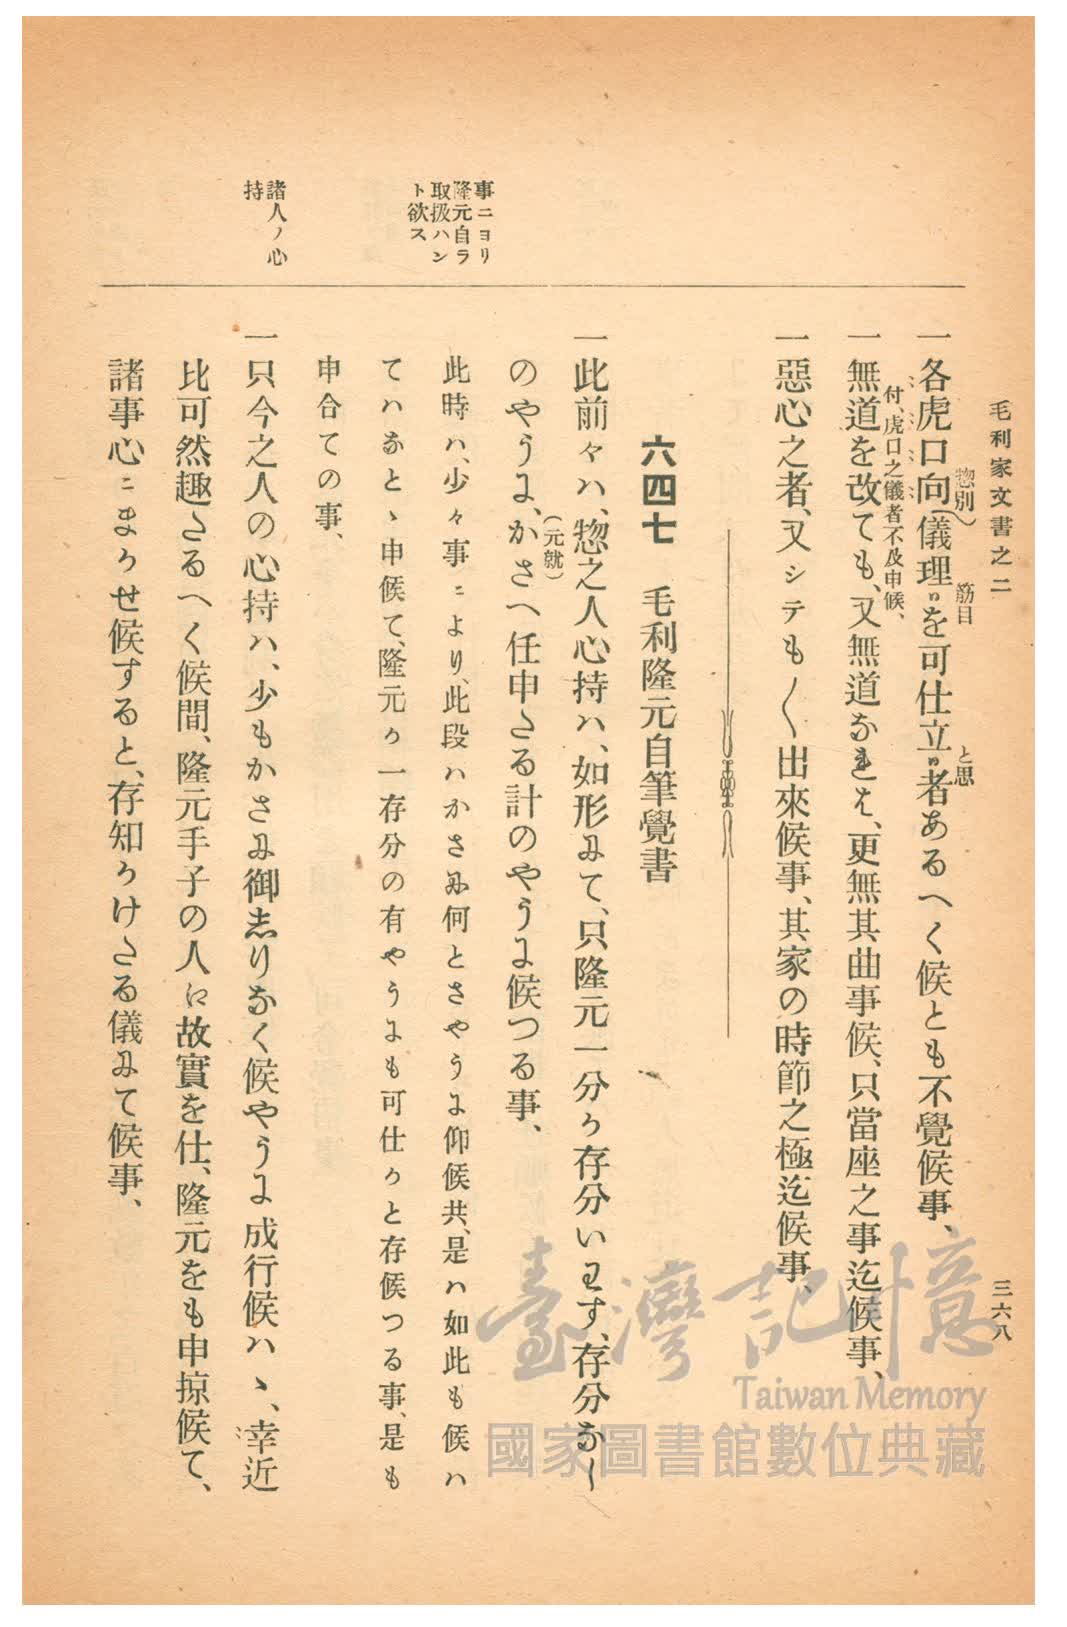 毛利家文書之二
三六八
惣別)
筋目
と思
一各虎口向(儀理〻を可仕立〻者あるへく候とも不覺候事、
付、虎口之儀者不及申候、
一無道を改ても、又無道なれは、更無其曲事候、只當座之事迄候事、
一惡心之者、又シテも〱出來候事、其家の時節之極迄候事、
六四七　毛利隆元自筆覺書
一此前々ハ、惣之人心持ハ、如形にて、只隆元一分か存分いわす、存分なし
(元就)
のやうに、かさへ任申たる計のやうに候つる事、
事ニヨリ
隆元自ラ
取扱ハン
ト欲ス
此時ハ、少々事ニより、此段ハかさに何とさやうに仰候共、是ハ如此も候ハ
てハなとゝ申候て、隆元か一存分の有やうにも可仕かと存候つる事、是も
申合ての事、
諸人ノ心
持
一只今之人の心持ハ、少もかさに御志りなく候やうに成行候ハゝ、幸近
比可然趣たるへく候間、隆元手子の人に故實を仕、隆元をも申掠候て、
諸事心ニまかせ候すると、存知かけたる儀にて候事、
臺灣記憶
Taiwan Memory
國家圖書館數位典藏